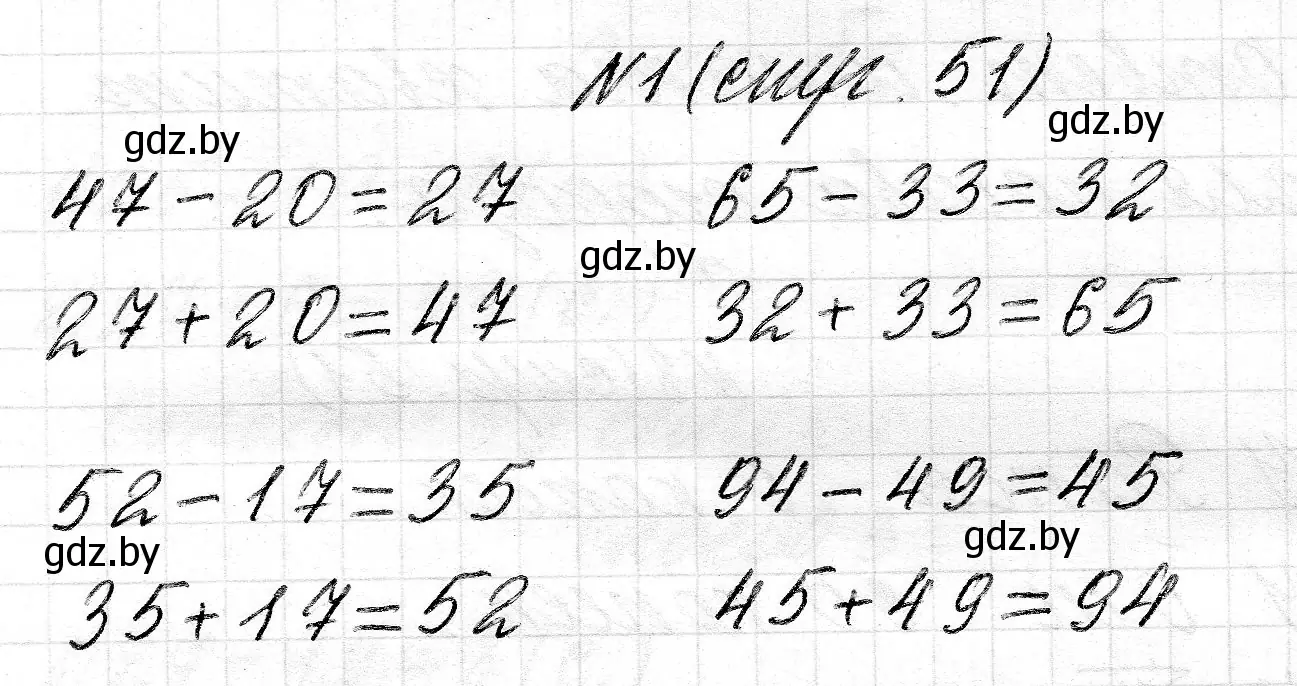 №1 (стр. 51)
gdz.by gdz.by
47 - 20 = 27 65 - 33 = 32
gdz.by
27 + 20 = 47 32 + 33 = 65
52 - 17 = 35 94 - 49 = 45
gdz.by gdz.by
35 + 17 = 52 45 + 49 = 94